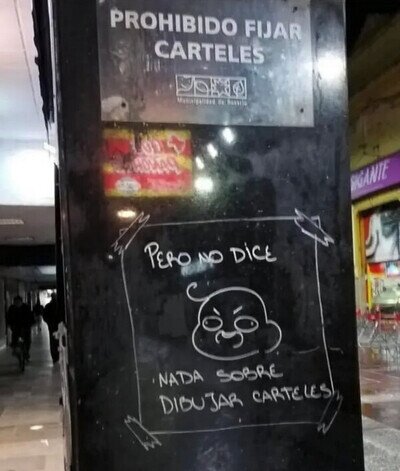 PROHIBIDO FIJAR
CARTELES
Municipalidad de Rosario
PERO NO DICE
NADA SOBRE
DIBUJAR CARTELES